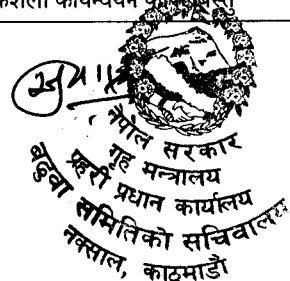 कार्यन्वयन
नेपाल सरकार
गृह मन्त्रालय
प्रहरी प्रधान कार्यालय
बढुवा समितिको सचिवालय
नक्साल, काठमाडौं